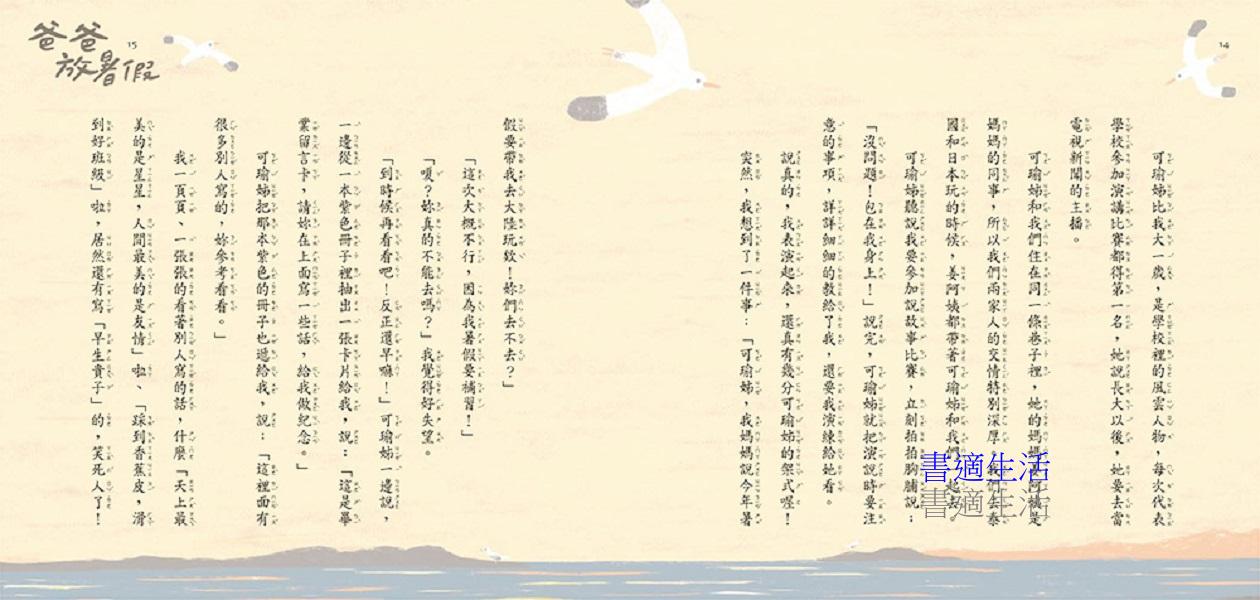 14
可瑜姊比我大一歲，是學校裡的風雲人物，每次代表
學校參加演講比賽都得第一名，她說長大以後，她要去當
電視新聞的主播。
可瑜姊和我們住在同一條巷子裡，她的媽媽姜阿姨是
媽媽的同事，所以我們兩家人的交情特別深厚，我們去泰
國和日本玩的時候，姜阿姨都帶著可瑜姊和我們一起去。
可瑜姊聽說我要參加說故事比賽，立刻拍拍胸脯說：
「沒問題！包在我身上！」說完，可瑜姊就把演說時要注
意的事項，詳詳細細的教給了我，還要我演練給她看。
說真的，我表演起來，還真有幾分可瑜姊的架式喔！
突然，我想到了一件事：「可瑜姊，我媽媽說今年暑
書適生活
書適生活
爸爸
放暑假
15
假要帶我去大陸玩欸！妳們去不去？」
「這次大概不行，因為我暑假要補習！」
「嗄？妳真的不能去嗎？」我覺得好失望。
「到時候再看看吧！反正還早嘛！」可瑜姊一邊說，
一邊從一本紫色冊子裡抽出一張卡片給我，說：「這是畢
業留言卡，請妳在上面寫一些話，給我做紀念。」
可瑜姊把那本紫色的冊子也遞給我，說：「這裡面有
很多別人寫的，妳參考看看。」
我一頁頁、一張張的看著別人寫的話，什麼「天上最
美的是星星，人間最美的是友情」啦、「踩到香蕉皮，滑
到好班級」啦，居然還有寫「早生貴子」的，笑死人了！